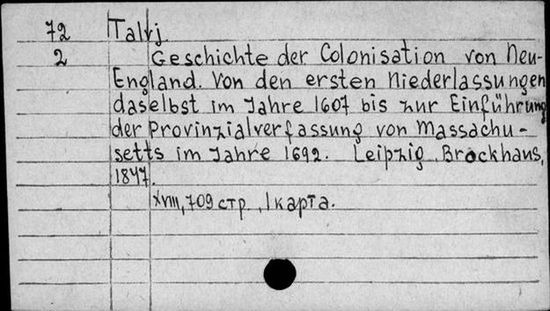 72 Talvj.
2 Geschichte der Colonisation von Neu-
England. Von den ersten Niederlassungen
daselbst im Jahre 1607 bis zur Einführung
der Provinzialverfassung von Massachu-
setts im Jahre 1692. Leipzig, Brockhaus,
1847.
XVIII, 709 стр., 1 карта.